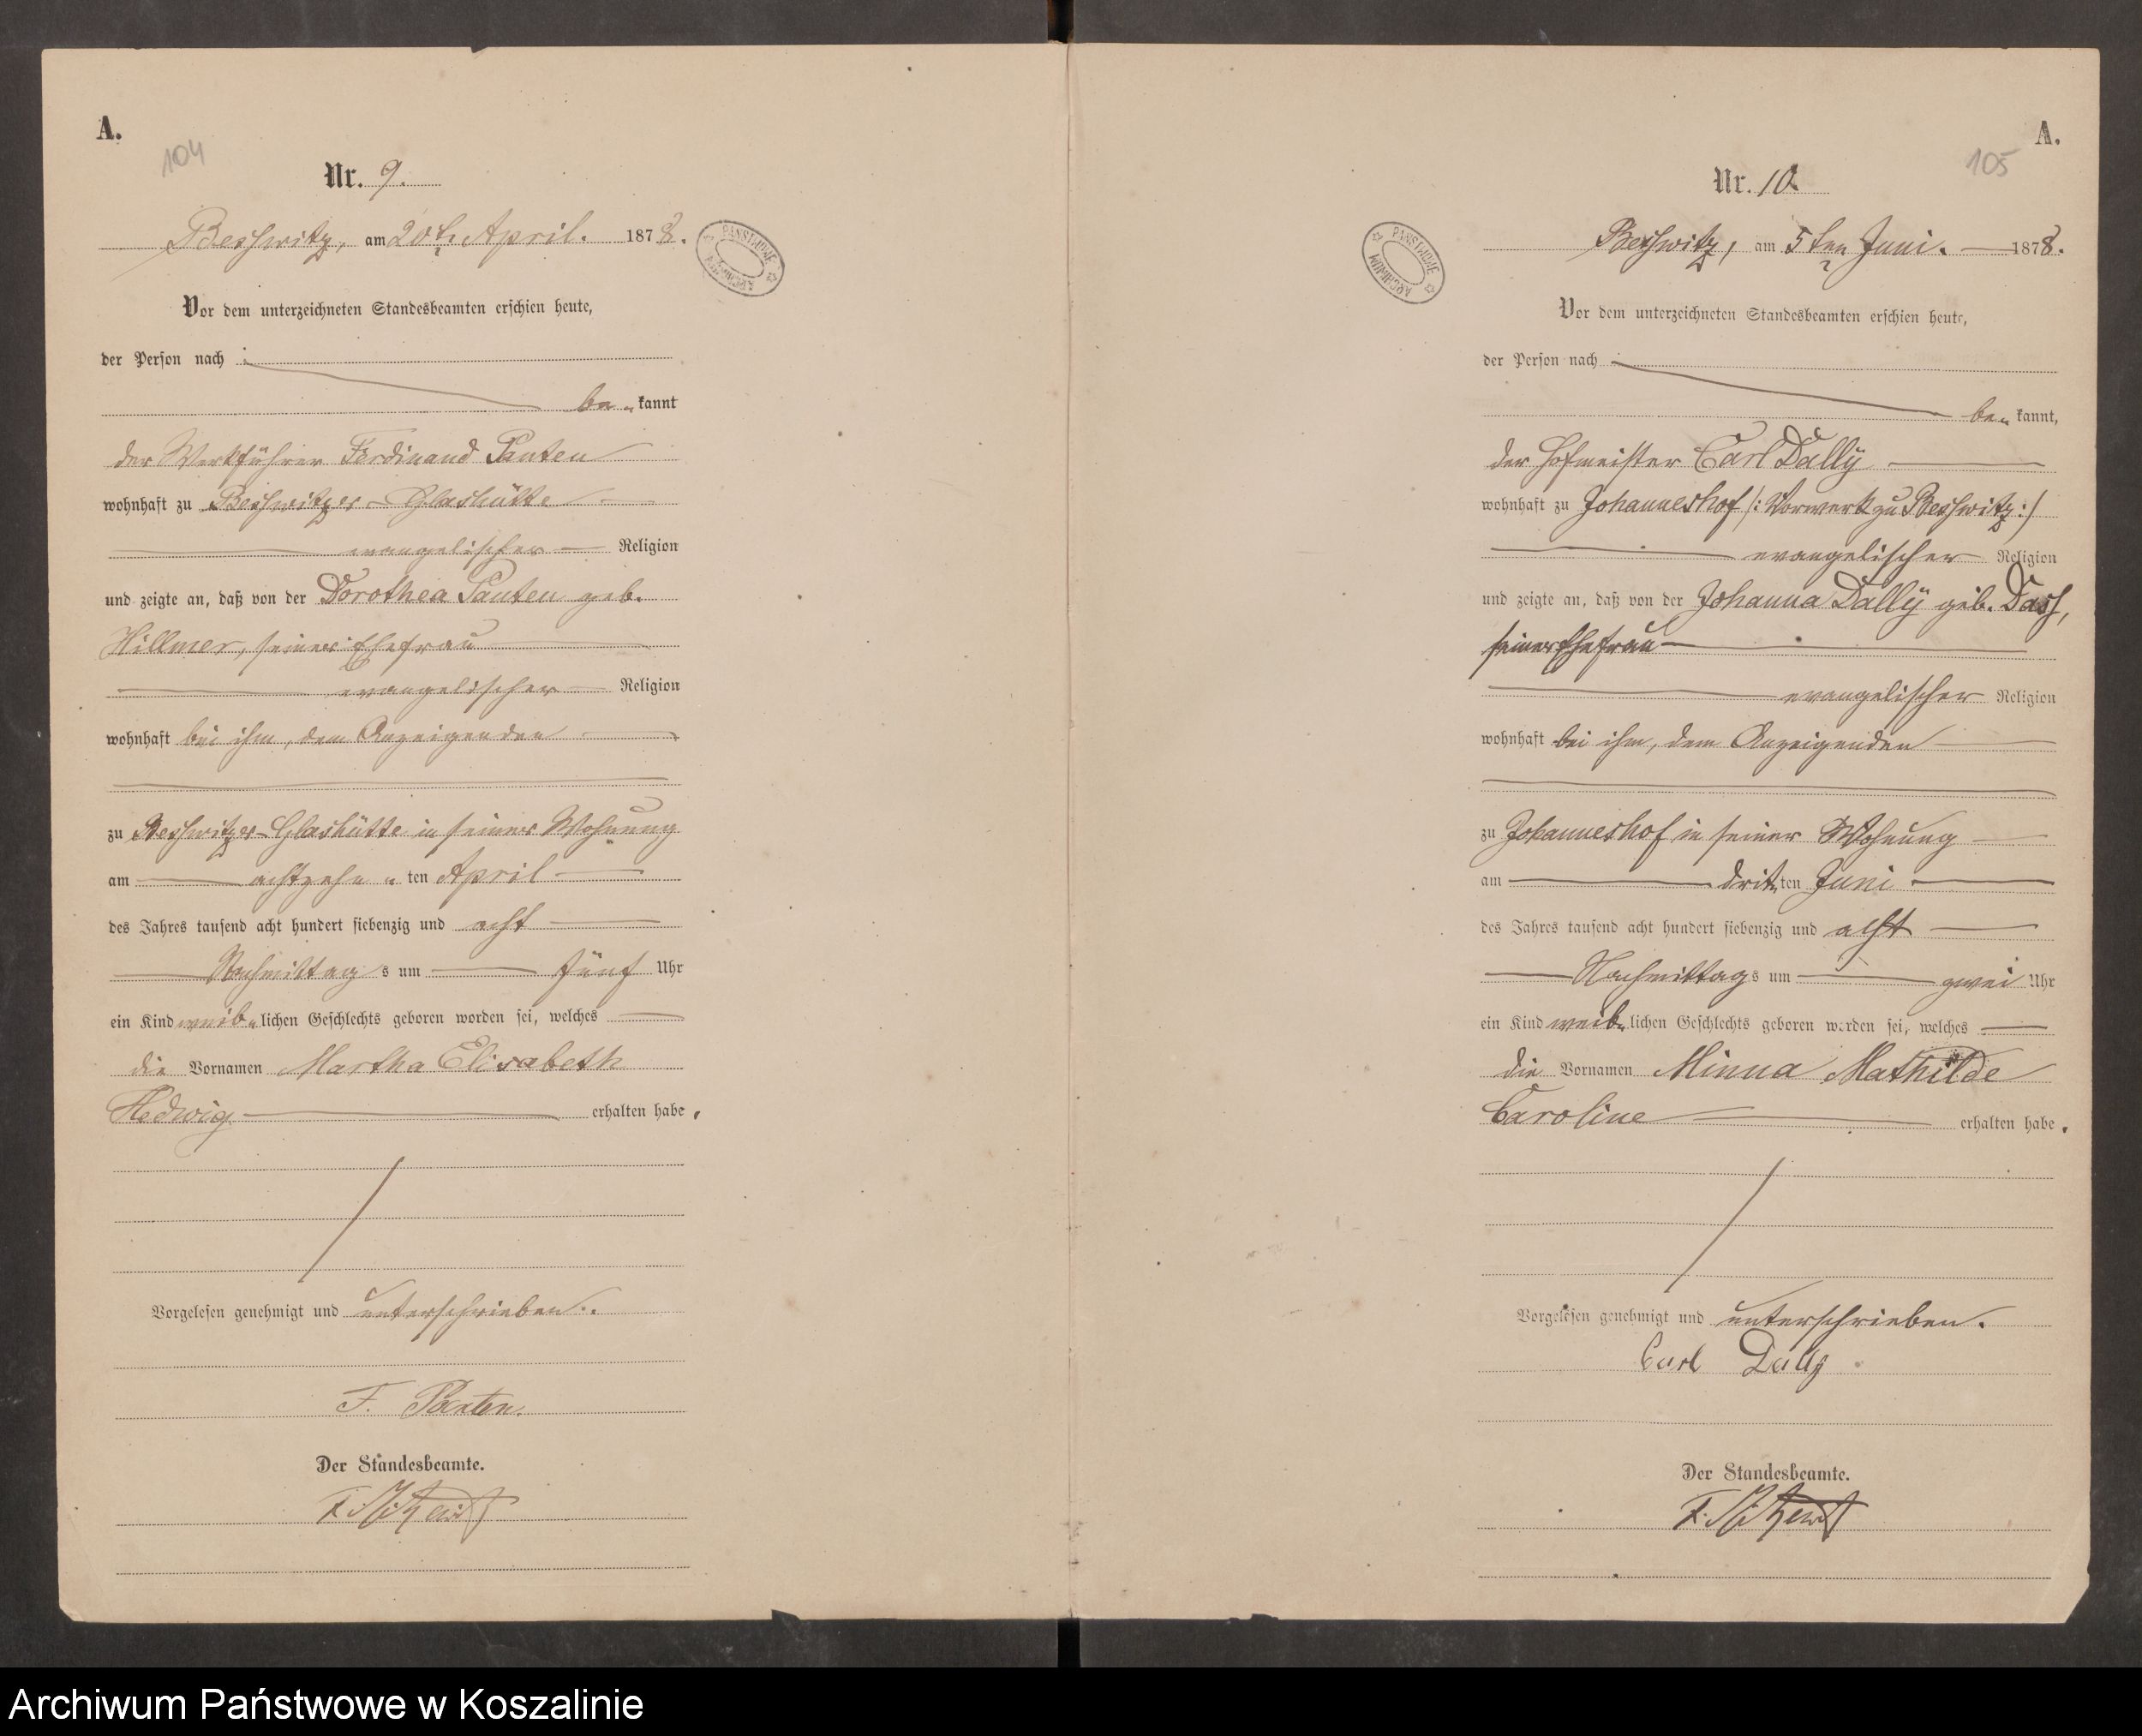 A.
104
Nr. 9.
Beßwitz, am 20t. April. 1878.
PAŃSTWOWE ARCHIWUM
Vor dem unterzeichneten Standesbeamten erschien heute,
der Person nach
be- kannt
der Werkführer Ferdinand Panten
wohnhaft zu Beßwitzer-Glashütte
evangelischer Religion
und zeigte an, daß von der Dorothea Panten geb.
Hillmer, seiner Ehefrau
evangelischer Religion
wohnhaft bei ihm, dem Anzeigenden
zu Beßwitzer-Glashütte in seiner Wohnung
am achtzehn-ten April
des Jahres tausend acht hundert siebenzig und acht
Nachmittags um fünf Uhr
ein Kind weib-lichen Geschlechts geboren worden sei, welches
die Vornamen Martha Elisabeth
Hedwig erhalten habe.
Vorgelesen genehmigt und unterschrieben.
F. Panten.
Der Standesbeamte.
A.
105
Nr. 10.
Beßwitz, am 5ten Juni. 1878.
PAŃSTWOWE ARCHIWUM
Vor dem unterzeichneten Standesbeamten erschien heute,
der Person nach
be- kannt,
der Hofmeister Carl Dally
wohnhaft zu Johanneshof /: Vorwerk zu Beßwitz :/
evangelischer Religion
und zeigte an, daß von der Johanna Dally geb.
seiner Ehefrau
evangelischer Religion
wohnhaft bei ihm, dem Anzeigenden
zu Johanneshof in seiner Wohnung
am dritten Juni
des Jahres tausend acht hundert siebenzig und acht
Nachmittags um zwei Uhr
ein Kind weib-lichen Geschlechts geboren worden sei, welches
die Vornamen Minna Mathilde
Caroline erhalten habe.
Vorgelesen genehmigt und unterschrieben.
Carl Dally
Der Standesbeamte.
Archiwum Państwowe w Koszalinie